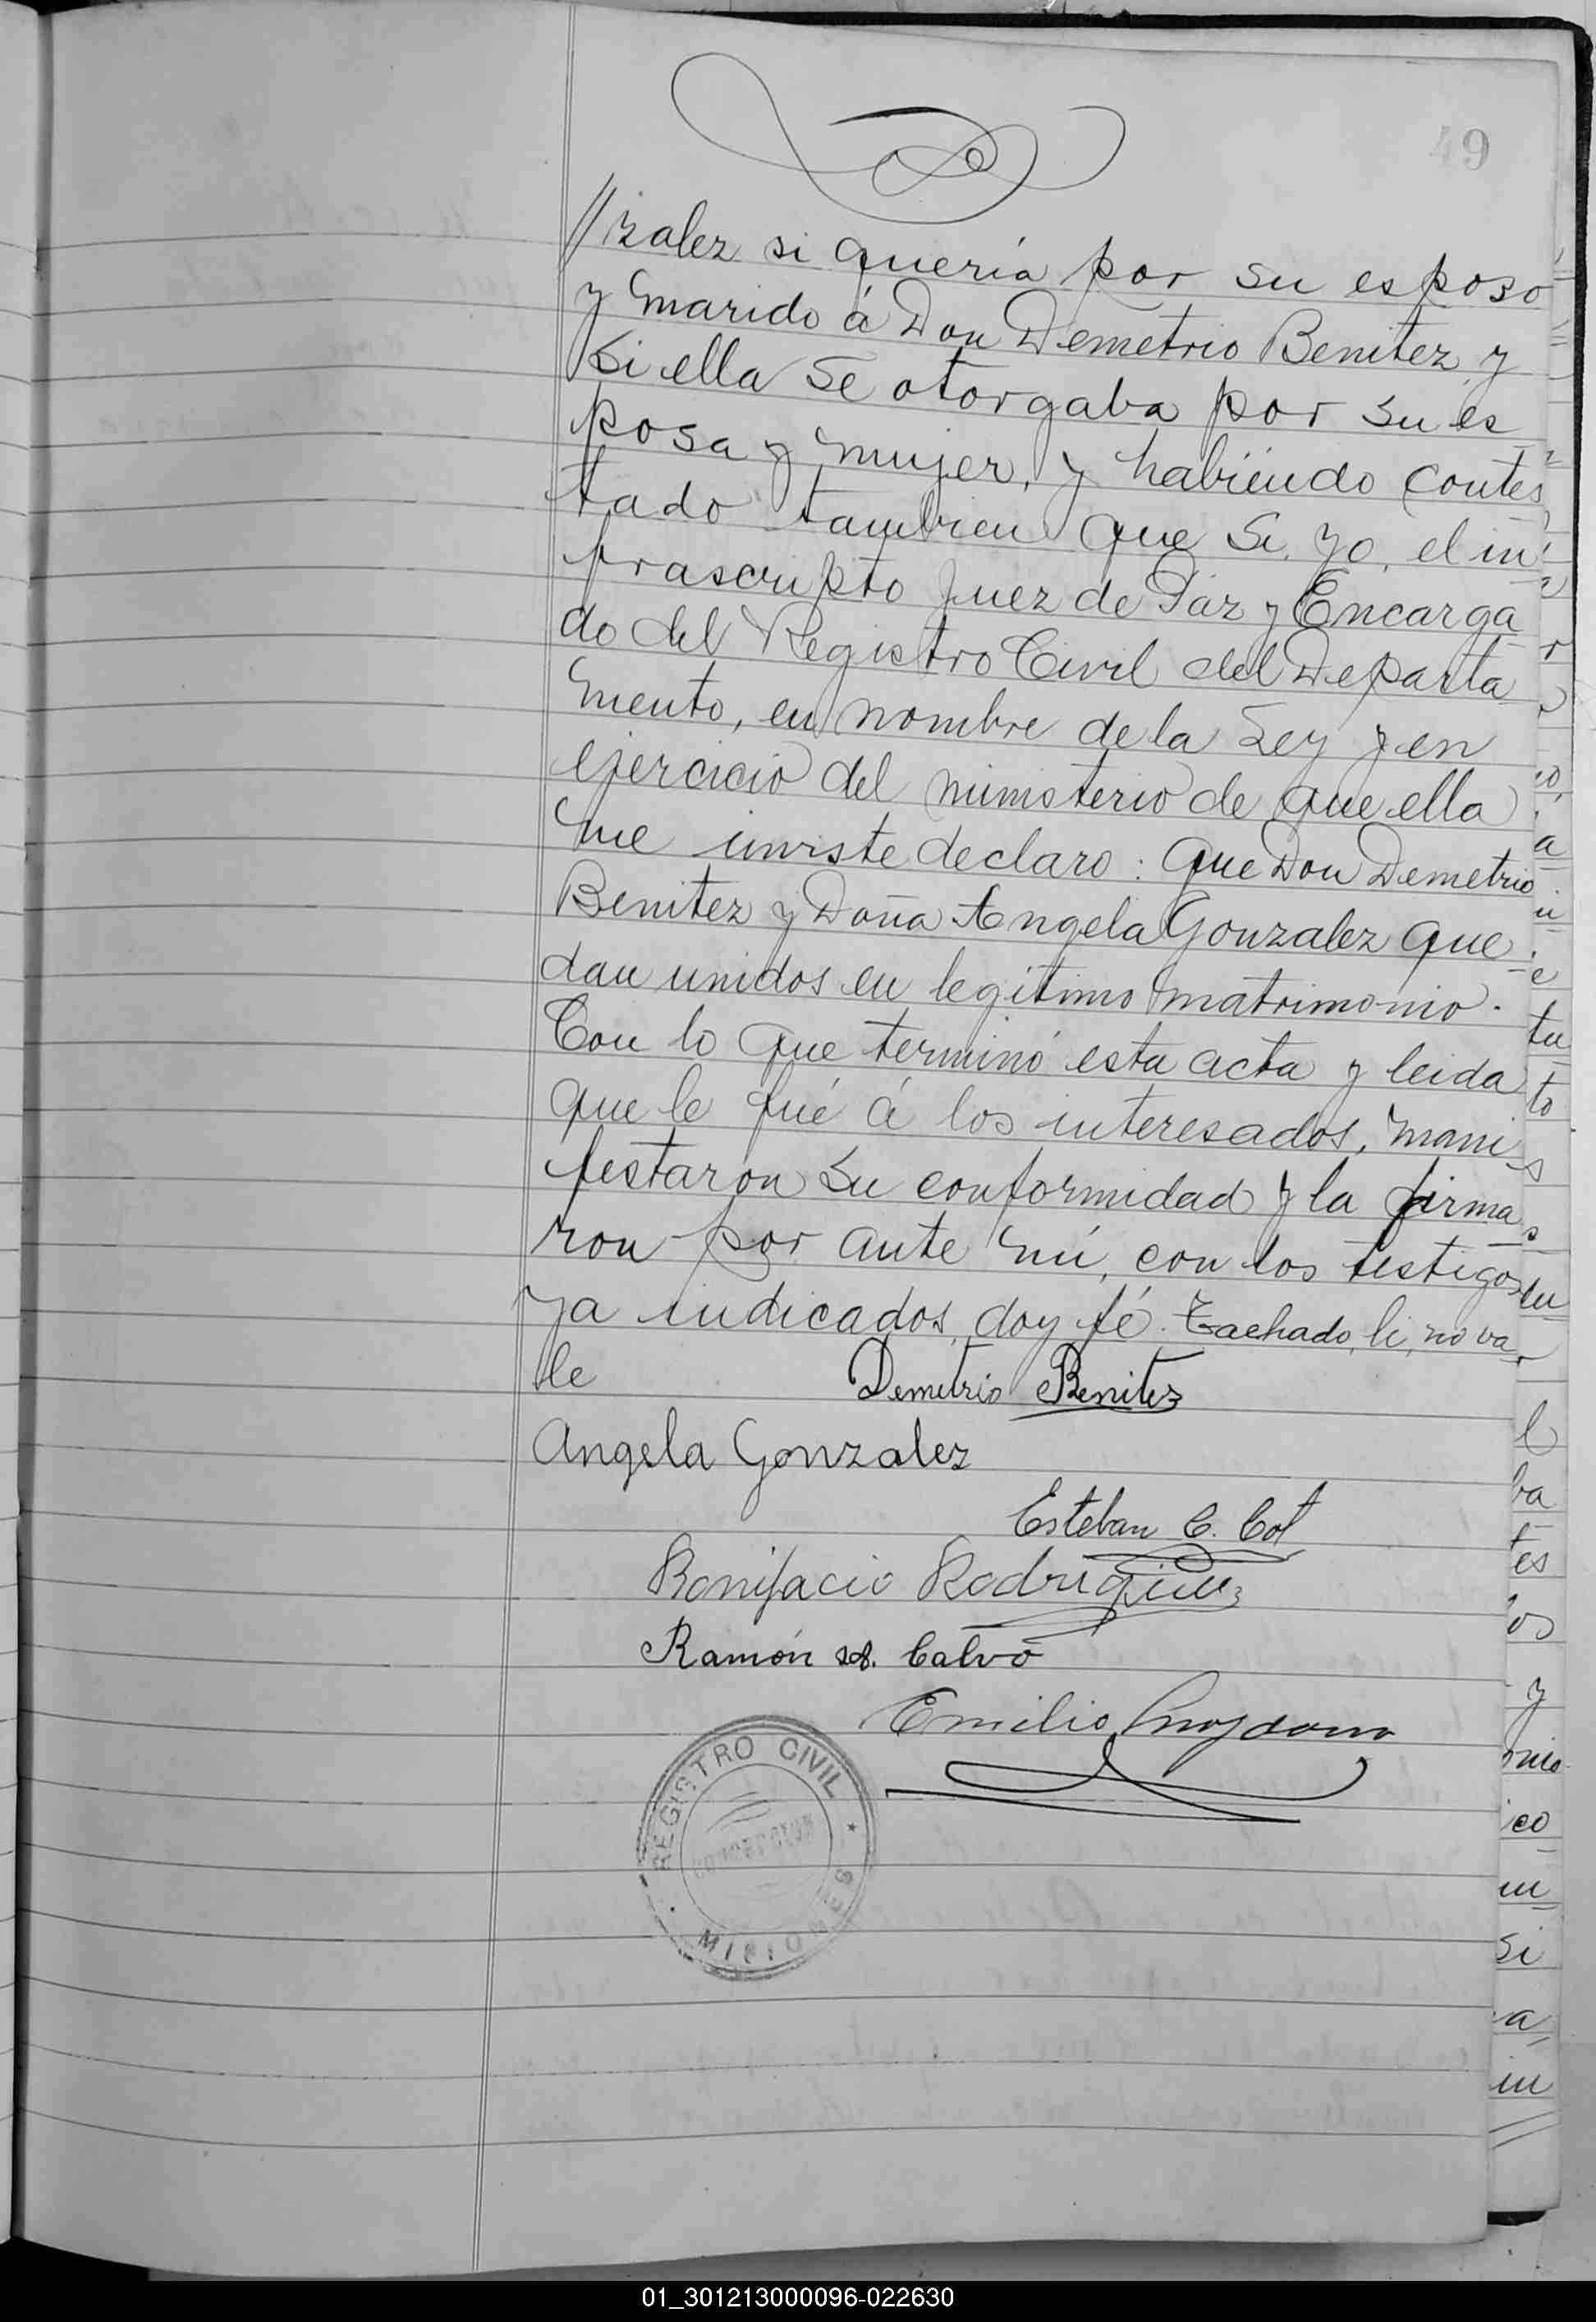 49
//zalez si quería por su esposo
y marido á Don Demetrio Benitez y
si ella se otorgaba por su es
posa y mujer, y habiendo contes
tado tambien que si, yo, el in
frascripto Juez de Paz y Encarga
do del Registro Civil del Departa
mento, en nombre de la Ley y en
ejercicio del ministerio de que ella
me inviste declaro: que Don Demetrio
Benitez y Doña Angela Gonzalez que
dan unidos en legitimo matrimonio.
Con lo que terminó esta acta y leida
que le fué á los interesados, mani
festaron su conformidad y la firma
ron por ante mi, con los testigos
ya indicados, doy fé. Tachado, li, no va
le
Demetrio Benitez
Angela Gonzalez
Esteban C. Cot
Bonifacio Rodriguez
Ramón Calvo
Emilio
REGISTRO CIVIL
CONCEPCION
MISIONES
01_301213000096-022630